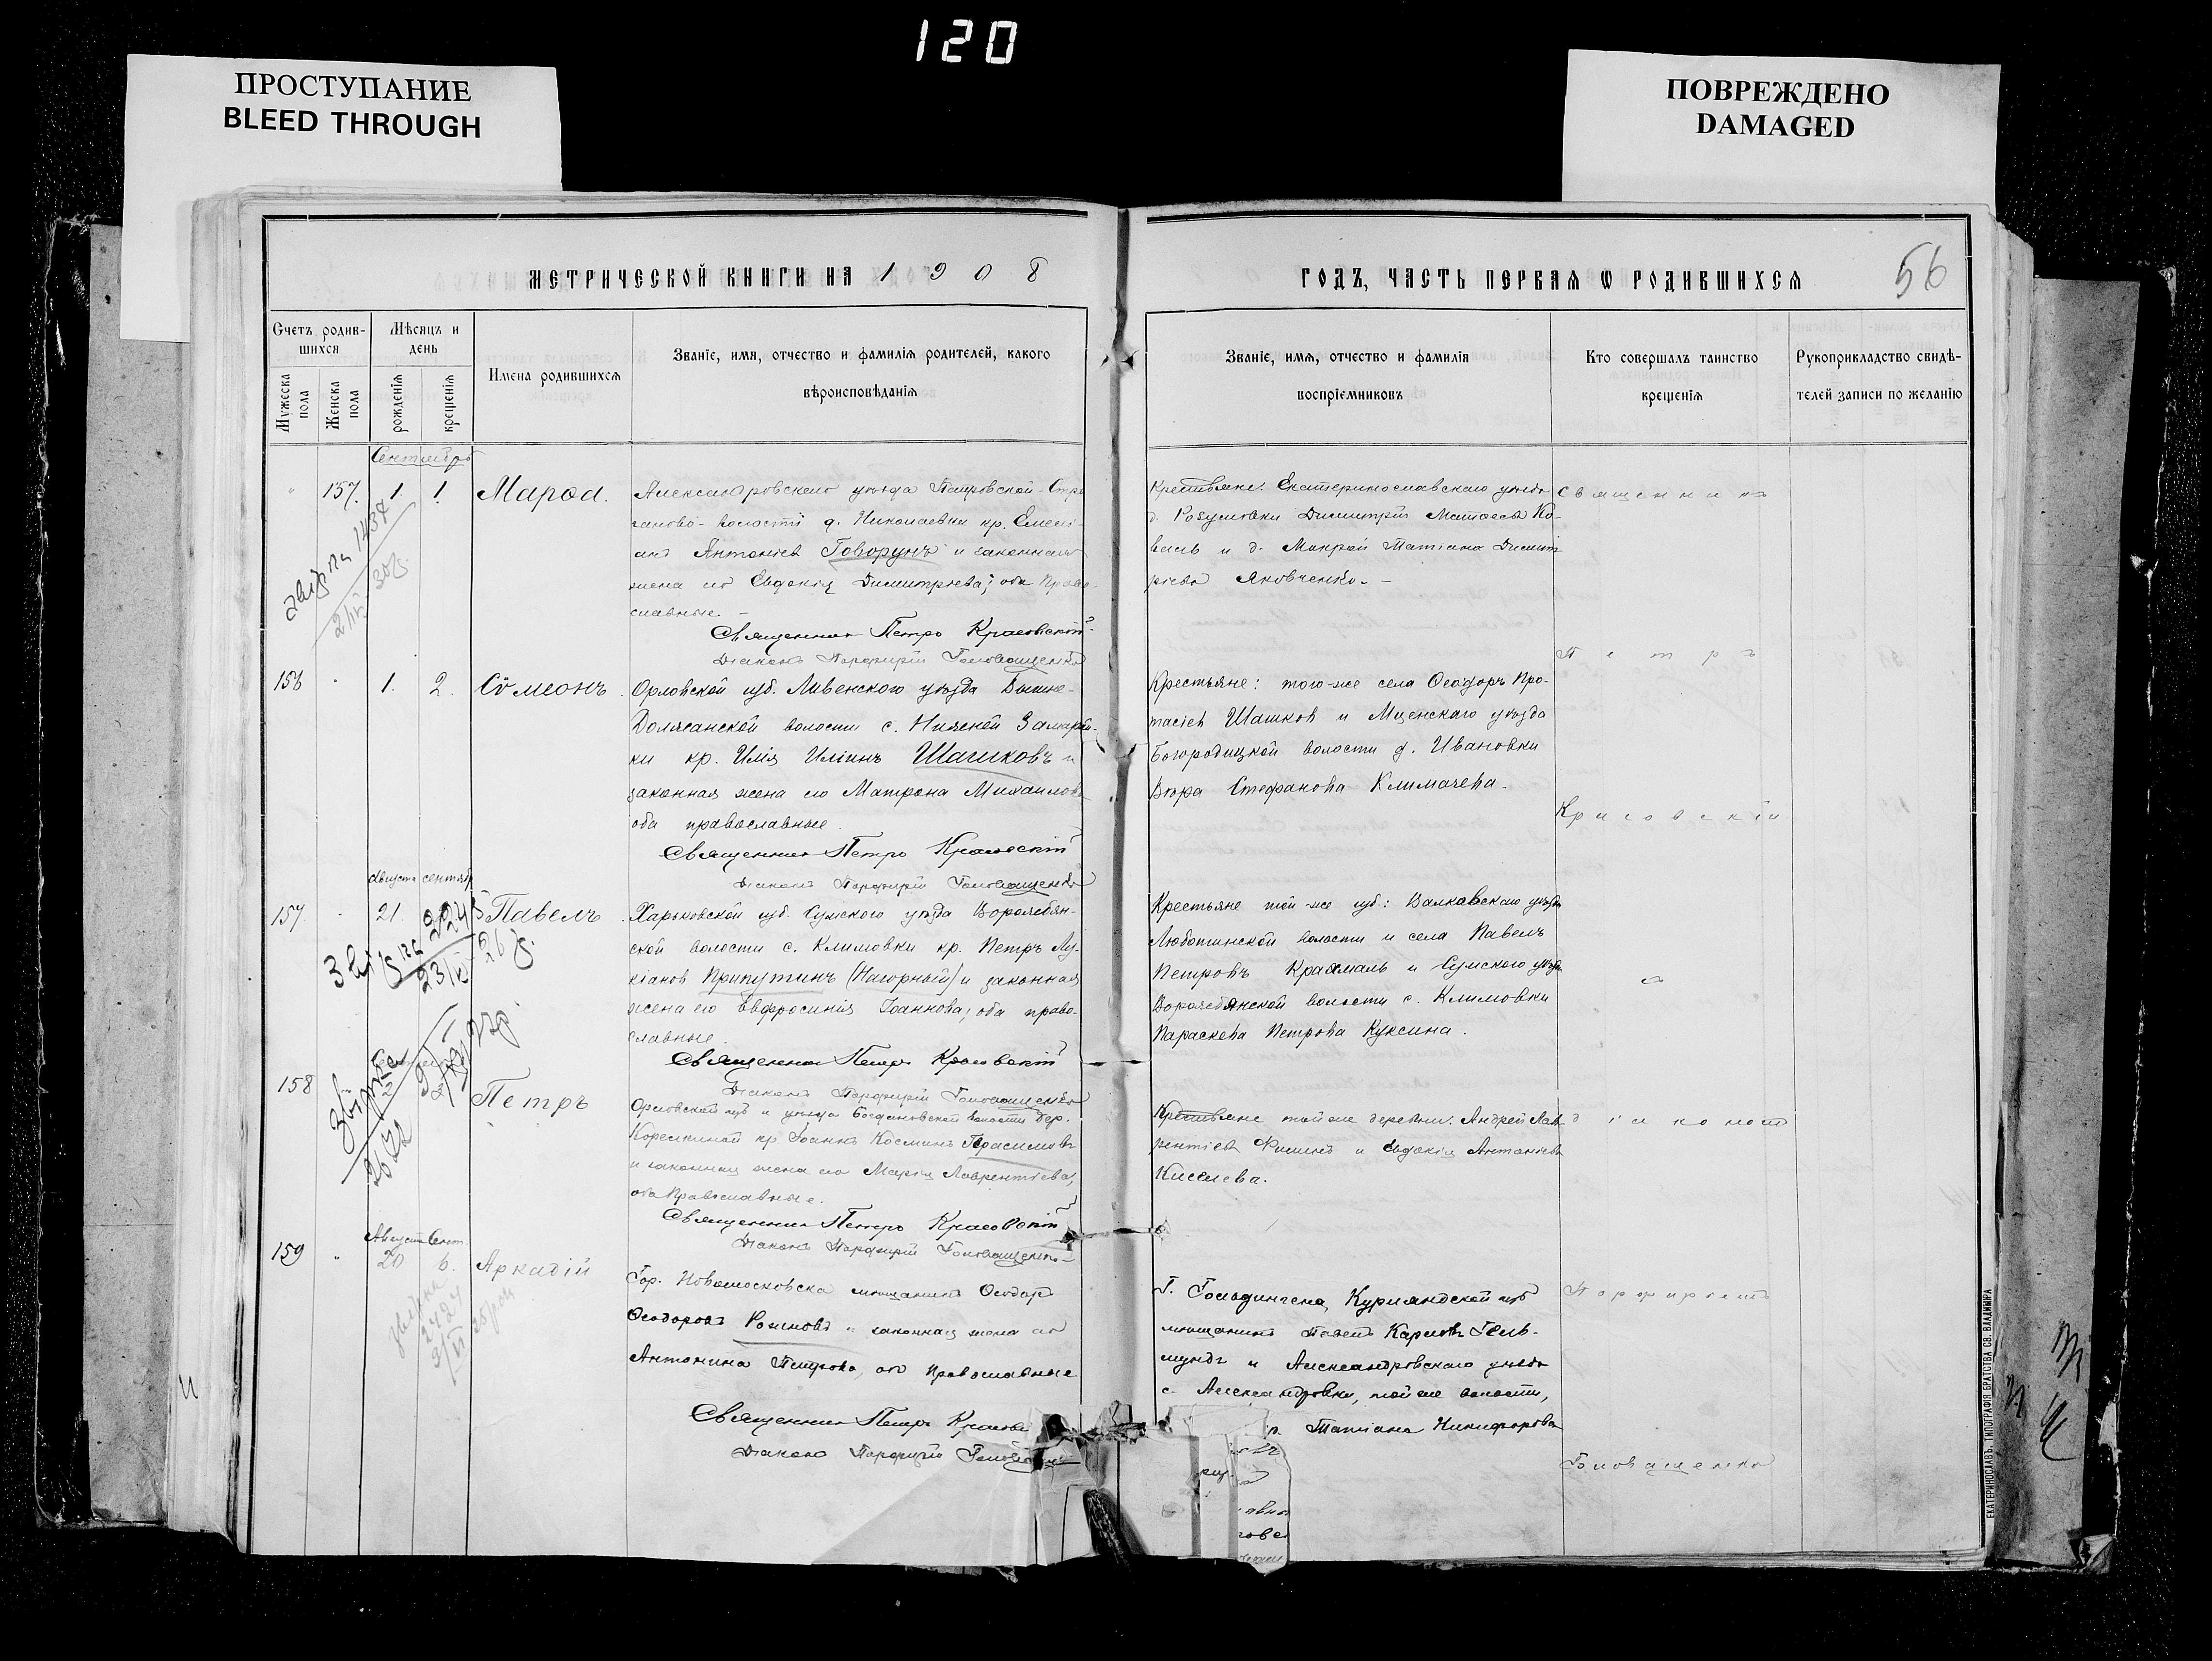 120
ПРОСТУПАНИЕ
BLEED THROUGH
ПОВРЕЖДЕНО
DAMAGED
МЕТРИЧЕСКОЙ КНИГИ НА 1908
ГОДЪ, ЧАСТЬ ПЕРВАЯ Ѡ РОДИВШИХСЯ
56
Счетъ родив-
шихся
Мужеска пола
Женска пола
Мѣсяцъ и
день
рожденія
крещенія
Имена родившихся
Званіе, имя, отчество и фамилія родителей, какого
вѣроисповѣданія
Званіе, имя, отчество и фамилія
воспріемниковъ
Кто совершалъ таинство
крещенія
Рукоприкладство свидѣ-
телей записи по желанію
Сентябрь
157. 1 1. Марѳа.
Александровскаго уѣзда Петровской-
волости д. Николаевки кр.
Антоніевъ Говорунъ и законная
жена его Евдокія Димитріева; оба Право-
славные. -
Священникъ Петръ Красовскій
Діаконъ Порфирій Головащенко
Крестьяне: Екатеринославскаго уѣзда
д. Димитрій Ко-
валь и д. Мокрой Татіана Димит-
ріева Яковченко. -
Священникъ
Петръ
Красовскій
съ
діакономъ
Порфиріемъ
Головащенко
156 1. 2. Сѵмеонъ.
Орловской губ. Ливенскаго уѣзда
Должанской волости с. Нижней
ки кр. Илія Иліинъ Шашковъ и
законная жена его Матрона Михаилова
оба православные.
Священникъ Петръ Красовскій
Діаконъ Порфирій Головащенко
Крестьяне: того-же села Ѳеодоръ Про-
тасіевъ Шашковъ и Мценскаго уѣзда
Богородицкой волости д. Ивановки
Вѣра Стефанова Климачева.
Августа сентяб
157 21. Павелъ.
Харьковской губ. Сумского уѣзда Ворожбян-
ской волости с. Климовки кр. Петръ Лу-
кіановъ Припутинъ (Нагорный) и законная
жена его Евфросинія Іоаннова; оба право-
славные.
Священникъ Петръ Красовскій
Діаконъ Порфирій Головащенко
Крестьяне той-же губ: Валковскаго уѣзда
Люботинской волости и села Павелъ
Петровъ Крахмаль и Сумского уѣзда
Ворожбянской волости с. Климовки
Параскева Петрова Куксина.
158 Петръ
Орловской губ и уѣзда Богдановской волости дер.
кр. Іоаннъ Косминъ Герасимовъ
и законная жена его Марія Лаврентіева,
оба Православные.
Священникъ Петръ Красовскій
Діаконъ Порфирій Головащенко
Крестьяне той же деревни: Андрей Лав-
рентіевъ и Евдокія Антоніева
Киселева.
Августа Сент.
159 20 6. Аркадій
Гор. Новомосковска мѣщанинъ Ѳеодоръ
Ѳеодоровъ и законная жена его
Антонина Петрова, оба Православные
Священникъ Петръ
Діаконъ Порфирій
Г. Гольдингена, Курляндской губ
мѣщанинъ Павелъ Карловъ Гель-
мундъ и Александровскаго уѣзда
с. Александровки, той же волости,
Татіана Никифорова
ЕКАТЕРИНОСЛАВЪ. ТИПОГРАФІЯ БРАТСТВА СВ. ВЛАДИМІРА